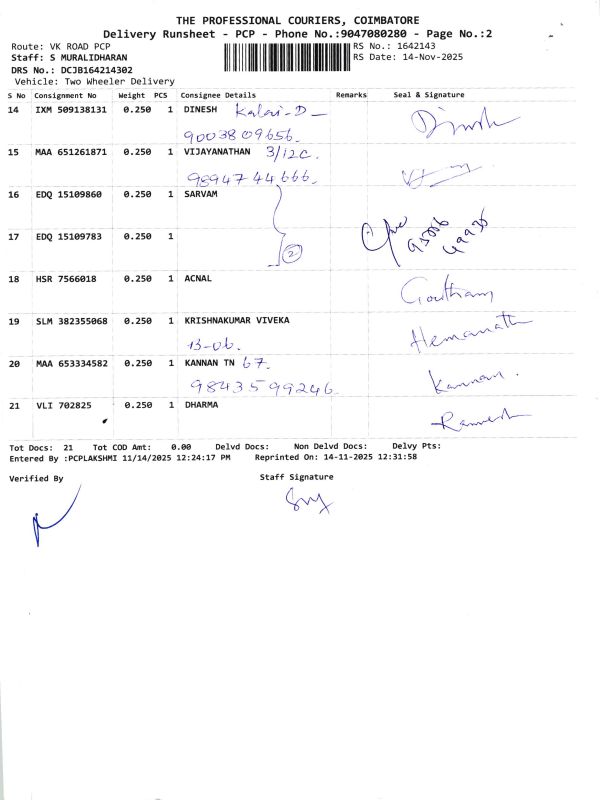 THE PROFESSIONAL COURIERS, COIMBATORE
Delivery Runsheet - PCP - Phone No.:9047080280 - Page No.:2
Route: VK ROAD PCP RS No.: 1642143
Staff: S MURALIDHARAN RS Date: 14-Nov-2025
DRS No.: DCJB164214302
Vehicle: Two Wheeler Delivery
S No Consignment No Weight PCS Consignee Details Remarks Seal & Signature
14 IXM 509138131 0.250 1 DINESH Kalai-D Dinesh
9003809656.
15 MAA 651261871 0.250 1 VIJAYANATHAN 3/12C.
9894744666.
16 EDQ 15109860 0.250 1 SARVAM
17 EDQ 15109783 0.250 1
2
18 HSR 7566018 0.250 1 ACNAL Goutham
19 SLM 382355068 0.250 1 KRISHNAKUMAR VIVEKA Hemanath
13-06.
20 MAA 653334582 0.250 1 KANNAN TN 67. Kannan.
9843599246.
21 VLI 702825 0.250 1 DHARMA Ramesh
Tot Docs: 21 Tot COD Amt: 0.00 Delvd Docs: Non Delvd Docs: Delvy Pts:
Entered By :PCPLAKSHMI 11/14/2025 12:24:17 PM Reprinted On: 14-11-2025 12:31:58
Verified By Staff Signature